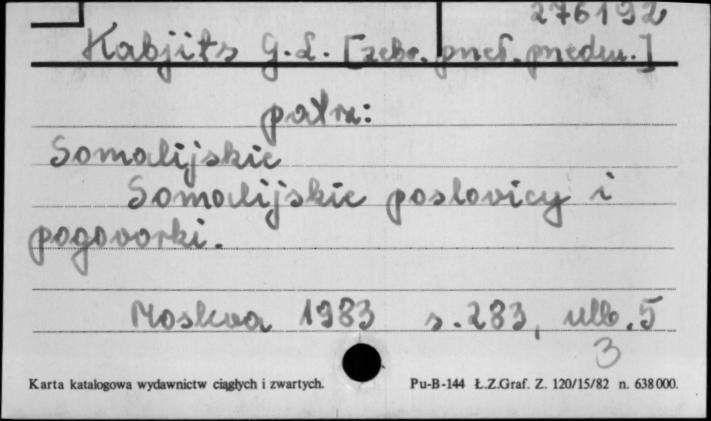 276192
Kabjits G.L. [zebr. pneł. pnedm.]
patrz:
Somalijskie
Somalijskie poslovicy i
pogovorki.
Moskva 1983 s. 283, nlb. 5
3
Karta katalogowa wydawnictw ciągłych i zwartych. Pu-B-144 Ł.Z.Graf. Z. 120/15/82 n. 638000.